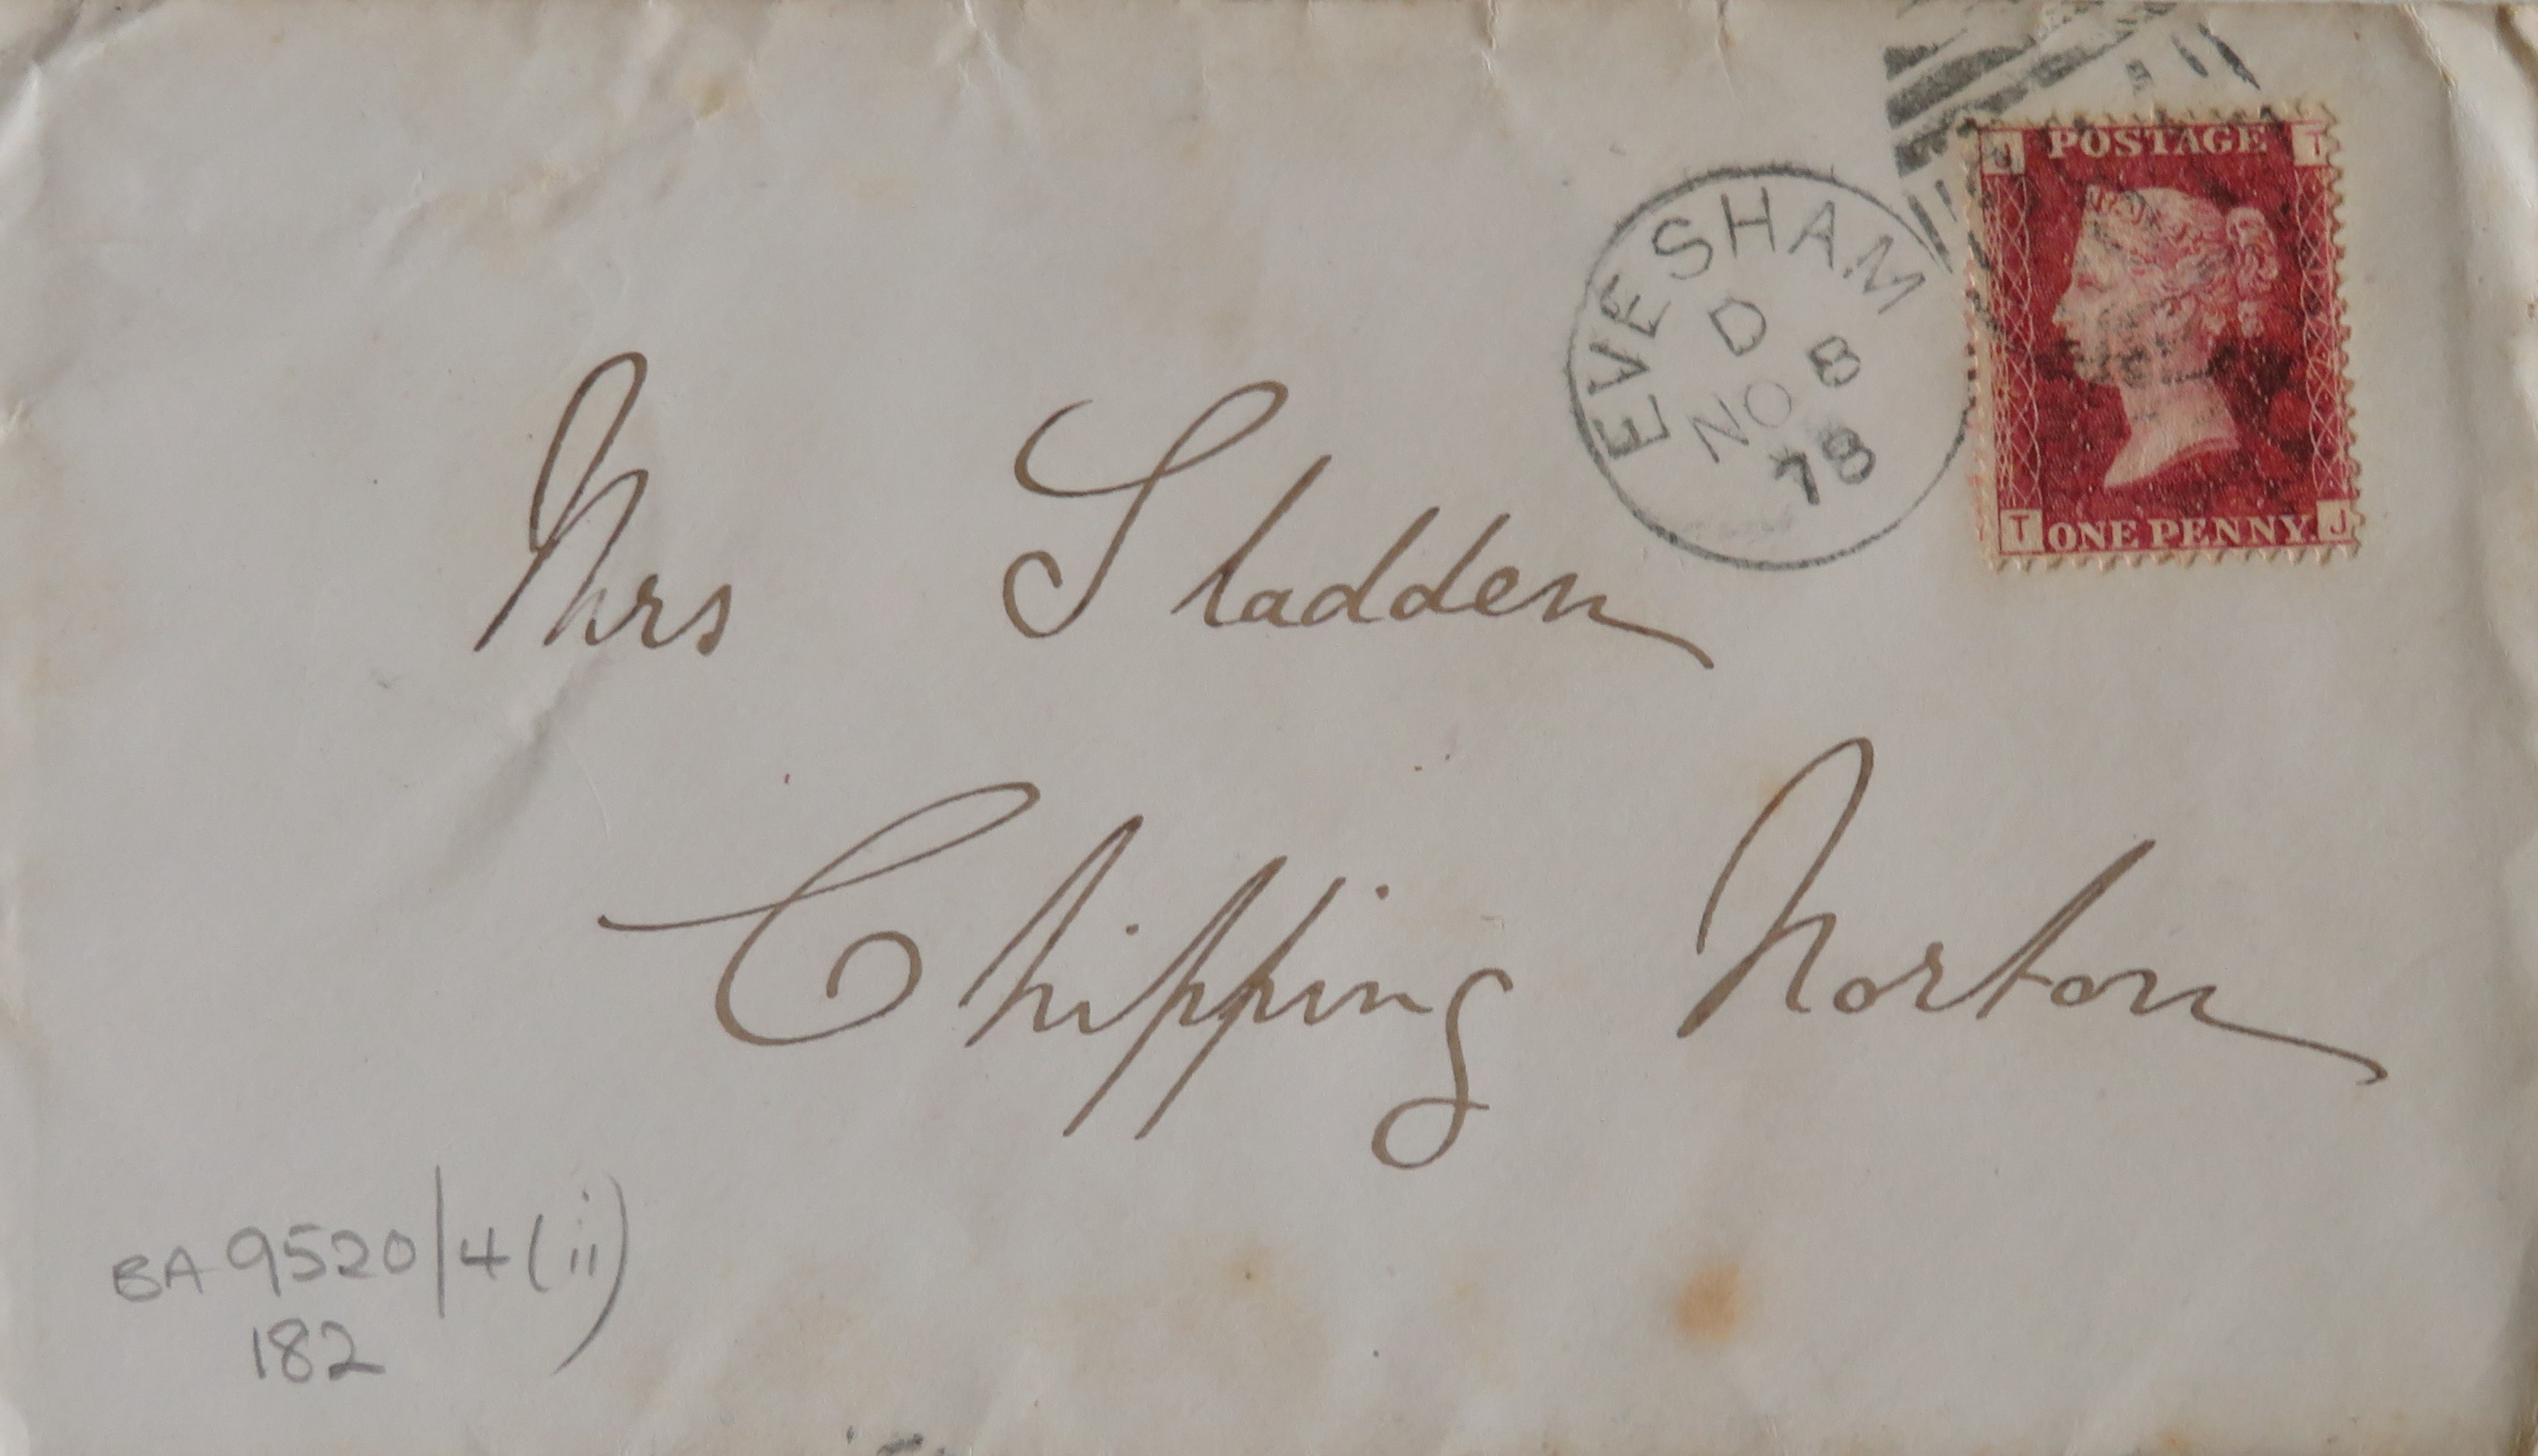 J POSTAGE T
EVESHAM
D
NO 8
78
T ONE PENNY. J
Mrs Sladden
Chipping Norton
BA 9520/4(ii)
182